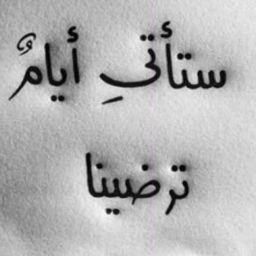 ستأتيِ أيامٌ
ترضينا